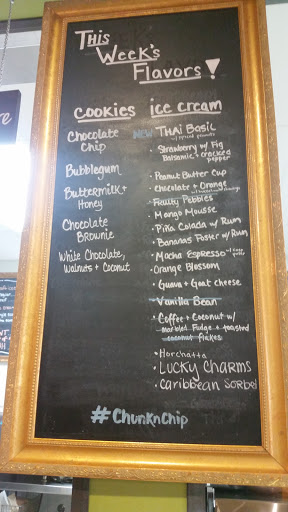 This
Week's
Flavors!
cookies
Chocolate
Chip
Bubblegum
Buttermilk +
Honey
Chocolate
Brownie
White Chocolate,
Walnuts + Coconut
ice cream
NEW THAI BASIL
w/ spiced peanuts
• Strawberry w/ Fig
Balsamic + cracked
pepper
• Peanut Butter Cup
• Chocolate + Orange
• Fruity Pebbles
• Mango Mousse
• Piña Colada w/ Rum
• Bananas Foster w/ Rum
• Mocha Espresso w/
• Orange Blossom
• Guava + Goat cheese
• Vanilla Bean
• Coffee + Coconut w/
marbled Fudge + toasted
coconut flakes
• Horchatta
• LUCKY CHARMS
• Caribbean Sorbet
#ChunknChip